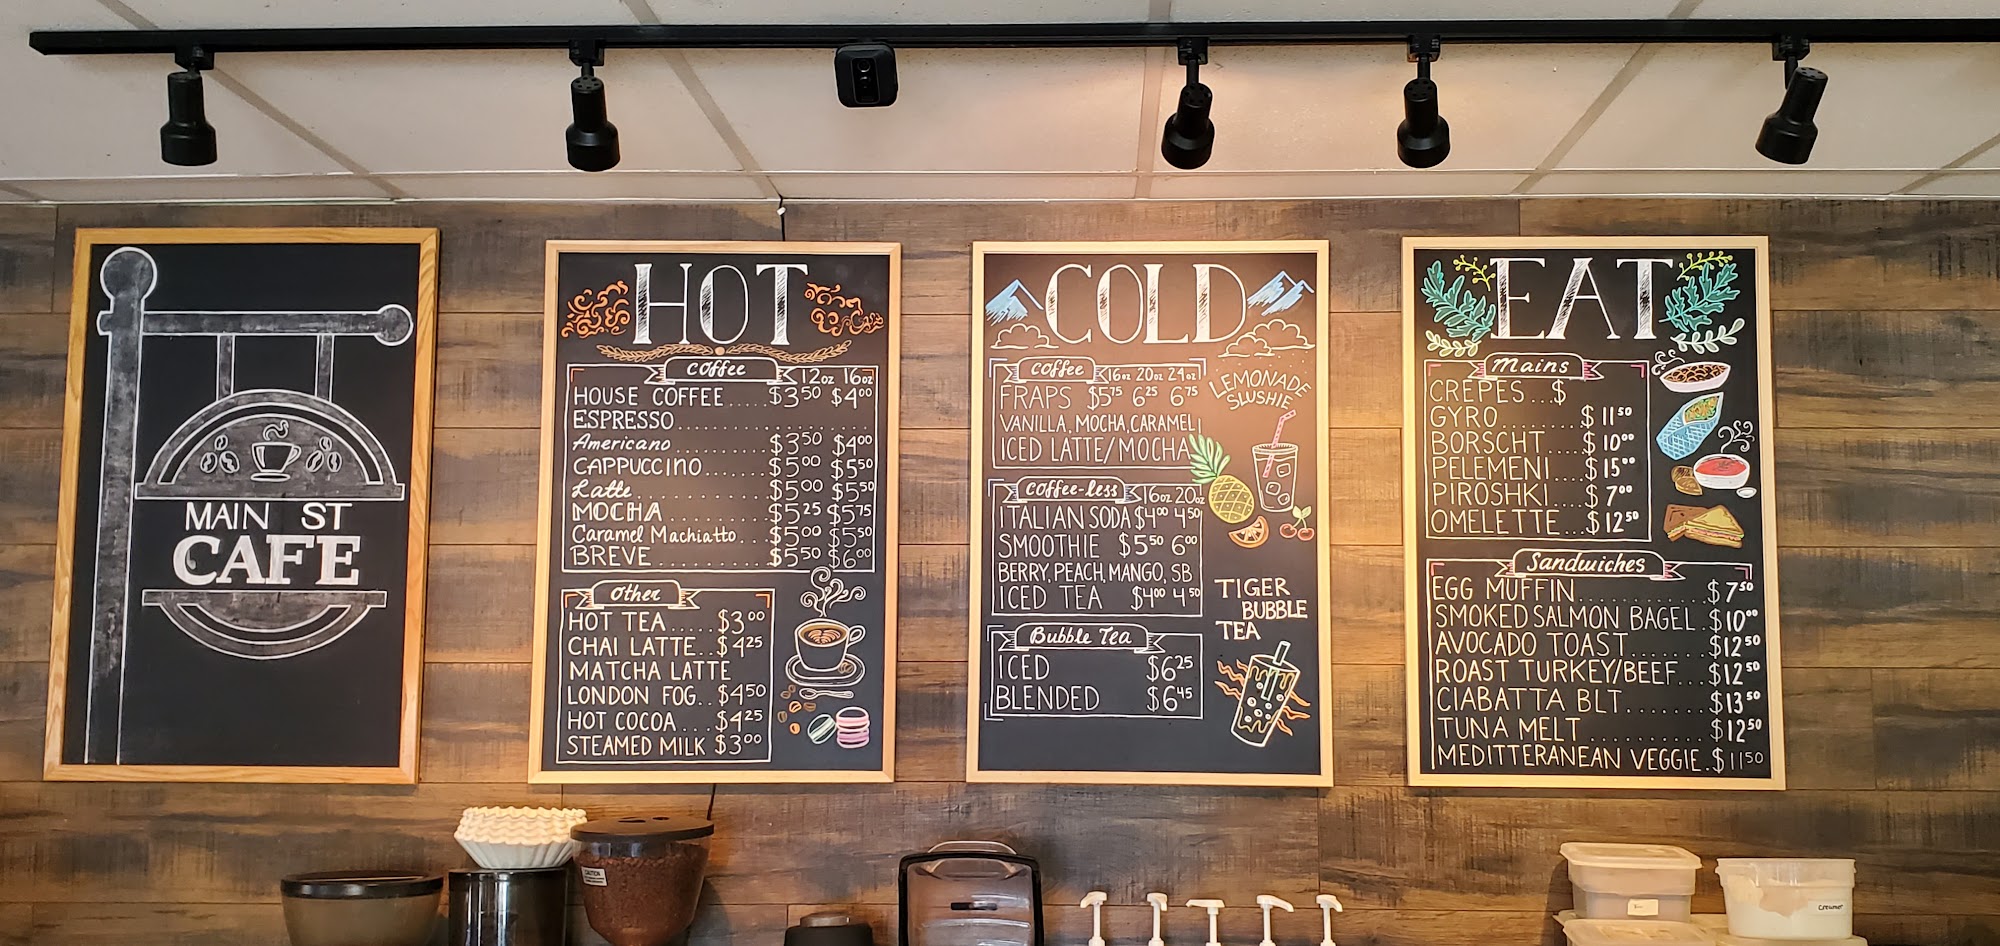 MAIN ST
CAFE
HOT
Coffee 12oz 16oz
HOUSE COFFEE.....$3.50 $4.00
ESPRESSO....................
Americano.........$3.50 $4.00
CAPPUCCINO.......$5.00 $5.50
Latte................$5.00 $5.50
MOCHA.............$5.25 $5.75
Caramel Machiatto...$5.00 $5.50
BREVE..............$5.50 $6.00
Other
HOT TEA.....$3.00
CHAI LATTE..$4.25
MATCHA LATTE
LONDON FOG..$4.50
HOT COCOA...$4.25
STEAMED MILK $3.00
COLD
Coffee 16oz 20oz 24oz
FRAPS $5.75 6.25 6.75
VANILLA, MOCHA, CARAMEL
ICED LATTE/MOCHA
LEMONADE
SLUSHIE
Coffee-less 16oz 20oz
ITALIAN SODA $4.00 4.50
SMOOTHIE $5.50 6.00
BERRY, PEACH, MANGO, SB
ICED TEA $4.00 4.50
Bubble Tea
ICED $6.25
BLENDED $6.45
TIGER
BUBBLE
TEA
EAT
Mains
CREPES...$
GYRO......$11.50
BORSCHT...$10.00
PELEMENI...$15.00
PIROSHKI...$7.00
OMELETTE...$12.50
Sandwiches
EGG MUFFIN..............$7.50
SMOKED SALMON BAGEL.$10.00
AVOCADO TOAST........$12.50
ROAST TURKEY/BEEF...$12.50
CIABATTA BLT.........$13.50
TUNA MELT............$12.50
MEDITTERANEAN VEGGIE.$11.50
CAUTION
Creamer